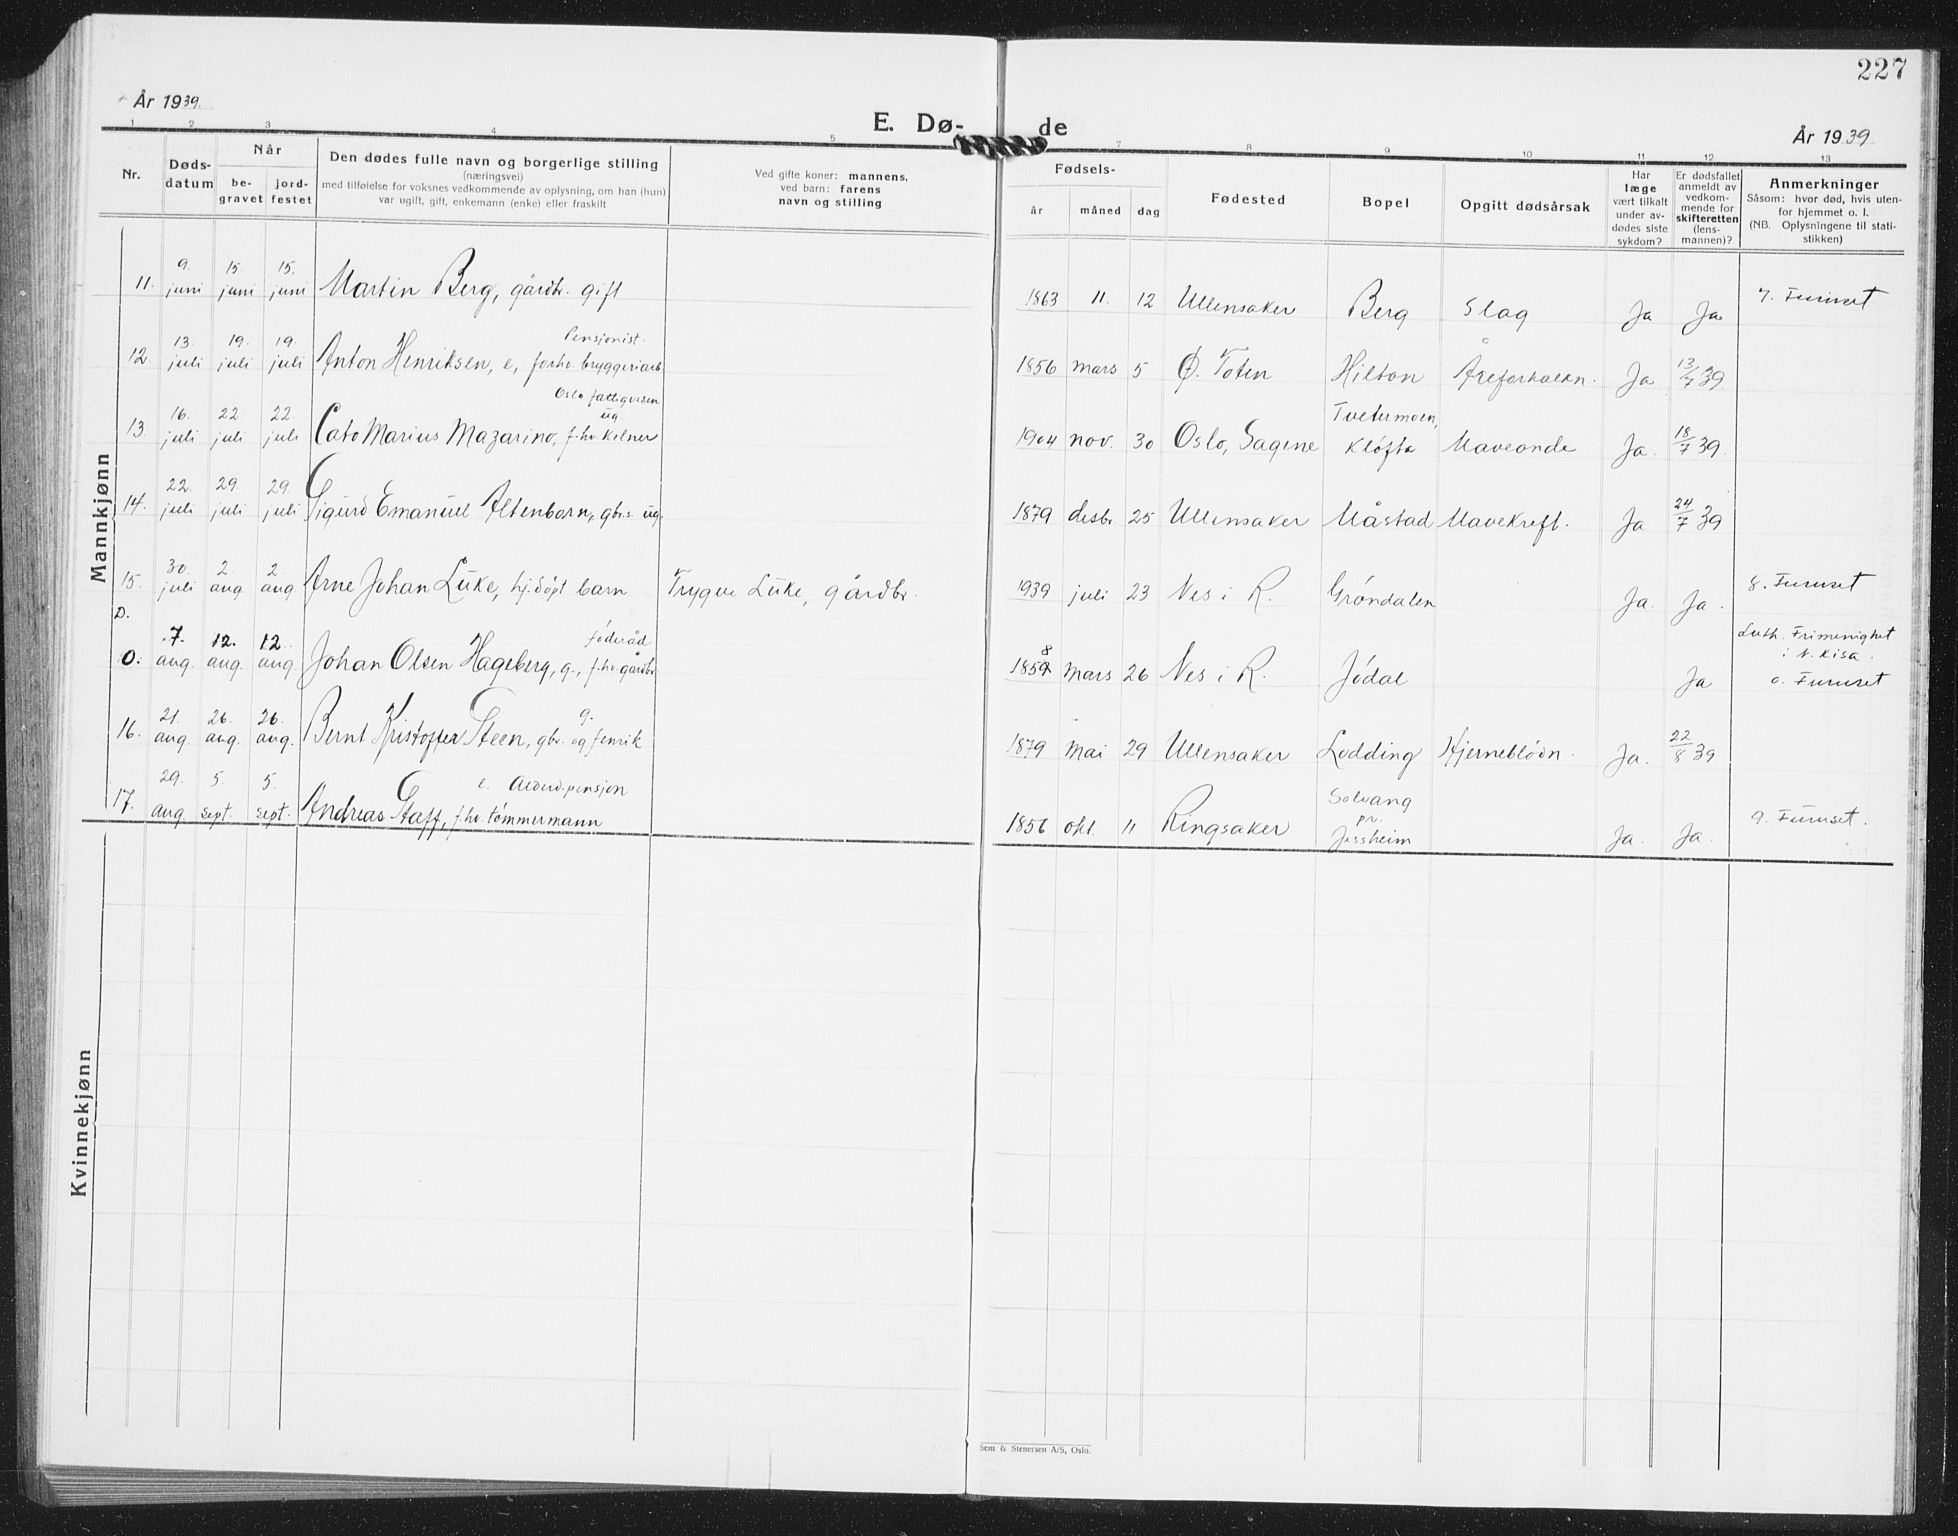 227
År 1939.
E. Dø- de
År 1939
1 2 3 4 5 7 8 9 10 11 12 13
Nr.
Døds-datum
Når
be-gravet
jord-festet
Den dødes fulle navn og borgerlige stilling
(næringsvei)
med tilføielse for voksnes vedkommende av oplysning, om han (hun)
var ugift, gift, enkemann (enke) eller fraskilt
Ved gifte koner: mannens,
ved barn: farens
navn og stilling
Fødsels-
år måned dag
Fødested
Bopel
Opgitt dødsårsak
Har læge vært tilkalt under av-dødes siste sykdom?
Er dødsfallet anmeldt av vedkom-mende for skifteretten (lens-mannen)?
Anmerkninger
Såsom: hvor død, hvis uten-
for hjemmet o. l.
(NB. Oplysningene til stati-
stikken)
Mannkjønn
11. 9. juni 15. juni 15. juni Martin Berg, gårdbr. gift 1863 11. 12 Ullensaker Berg Slag Ja Ja 7. Furuset
Pensjonist.
12. 13. juli 19. juli 19. juli Anton Henriksen, e, forhv. bryggeriarb 1856 mars 5 Ø. Toten Hilton Åreforkalkn. Ja 13/7 39
Oslo fattigvesen
ug.
13. 16. juli 22. juli 22. juli Cato Marius Mazarino, f.hv. kelner 1904 nov. 30 Oslo, Sagene Tvetermoen, Kløfta Maveonde Ja. 18/7 39.
14. 22. juli 29. juli 29. juli Sigurd Emanuel Altenborn, gbr.s. ug. 1879 desbr. 25 Ullensaker Måstad Mavekreft. Ja 24/7 39
15. D. 30. juli 2. aug. 2. aug. Arne Johan Luke, hj.døpt barn Trygve Luke, gårdbr. 1939 juli 23 Nes i R. Grøndalen Ja. Ja. 8. Furuset
føderåd
0. 7. aug. 12. aug. 12. aug. Johan Olsen Hageberg, g., f.hv. gårdbr. 1858 mars 26 Nes i R. Jødal Ja Luth. Frimenighet
i N. Kisa.
o. Furuset
g.
16. 21. aug. 26. aug. 26. aug. Bernt Kristoffer Steen, gbr. og fenrik 1879 mai 29 Ullensaker Lodding Hjerneblødn. Ja. 22/8 39
e. Alderd.pensjon
17. 29. aug. 5. sept. 5. sept. Andreas Staff, f.hv. tømmermann 1856 okt. 11 Ringsaker Solvang pr. Jessheim Ja. Ja. 9. Furuset.
Kvinnekjønn
Sem & Stenersen A/S, Oslo.